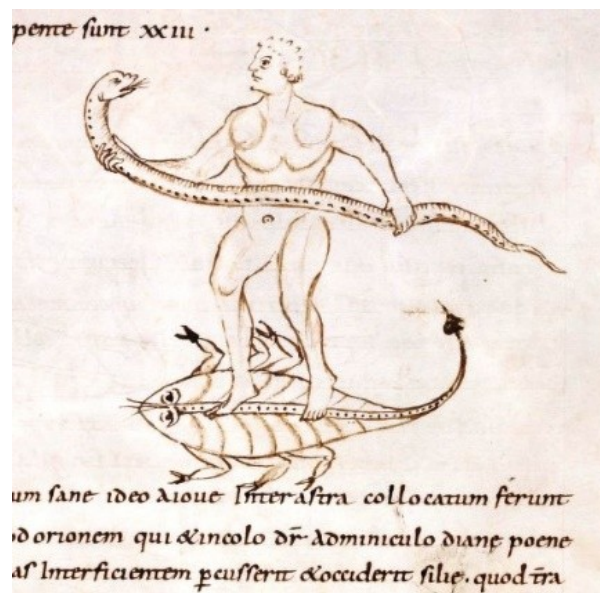 pente sunt xxiii·
um sane ideo aioue Inter astra collocatum ferunt
od orionem qui &incolo dr̄ Adminiculo dianę poene
as Interficientem ꝑcusserit &occiderit silię· quod t̄ra